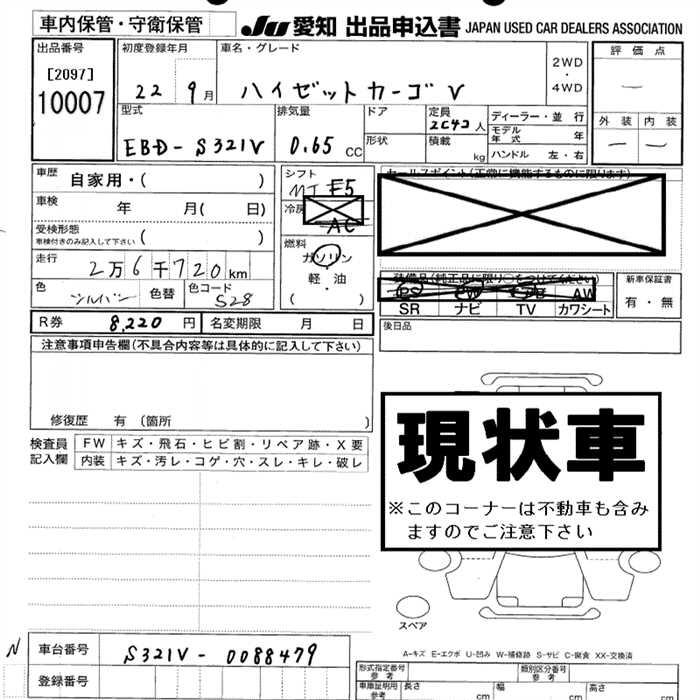 車内保管・守衛保管
JU 愛知 出品申込書 JAPAN USED CAR DEALERS ASSOCIATION
出品番号
[2097]
10007
初度登録年月
22 9月
車名・グレード
ハイゼットカーゴ V
2WD
・
4WD
評価点
—
外装 内装
— —
型式
EBD-S321V
排気量
0.65 CC
ドア
形状
定員
2C42人
積載
kg
ディーラー・並 行
モデル
年 式 年
ハンドル 左・右
車歴 自家用・( )
車検 年 月( 日)
受検形態
車検付きのみ記入して下さい ( )
走行 2万6千720km
色 シルバー 色替 色コード S28
シフト
MT F5
冷房
AC
燃料
ガソリン
軽・油
( )
セールスポイント(正常に機能するものに限ります)
装備品(純正品に限り○をつけてください)
PS PW AW
SR ナビ TV カワシート
新車保証書
有・無
後日品
R券 8,220 円 名変期限 月 日
注意事項申告欄(不具合内容等は具体的に記入して下さい)
修復歴 有 (箇所 )
検査員
記入欄
FW キズ・飛石・ヒビ割・リペア跡・X要
内装 キズ・汚レ・コゲ・穴・スレ・キレ・破レ
現状車
※このコーナーは不動車も含み
ますのでご注意下さい
スペア
A-キズ E-エクボ U-凹み W-補修跡 S-サビ C-腐食 XX-交換済
N
車台番号 S321V-0088479
登録番号
形式指定番号
参考
類別区分番号
参考
車庫証明用
参考
長さ cm 幅 cm 高さ cm